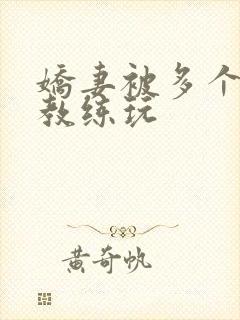 嬌妻被多个
教练玩
黄奇帆